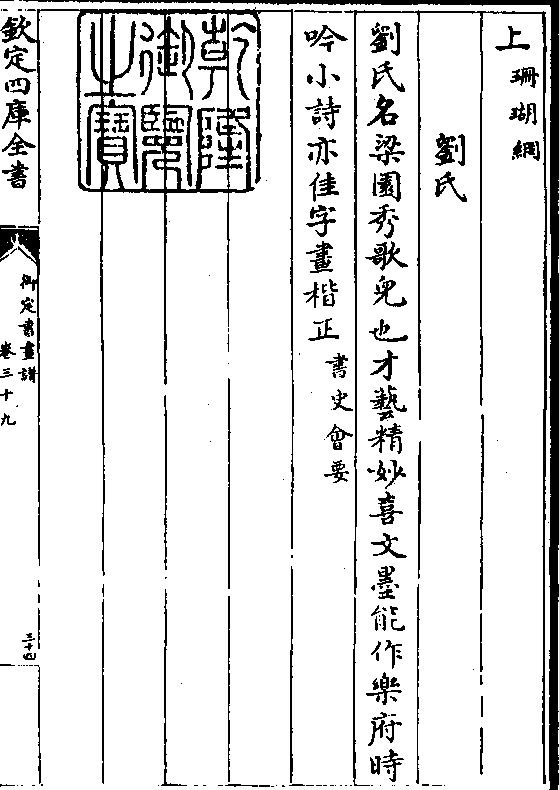 上 珊瑚網
劉氏
劉氏名梁園秀歌兒也才藝精妙喜文墨能作樂府時
吟小詩亦佳字畫楷正 書史會要
乾隆御覽之寶
欽定四庫全書
御定書畫譜
卷三十九
三十四